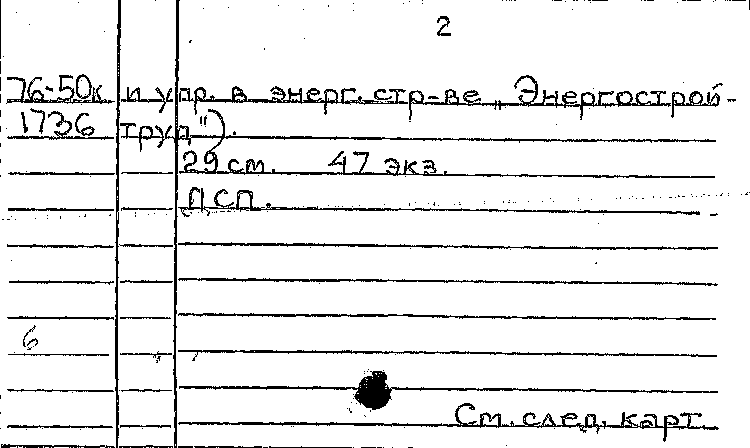 2
76-50к и упр. в энерг. стр-ве „Энергострой-
1736 труд").
29 см. 47 экз.
ПСП.
6
См. след. карт.